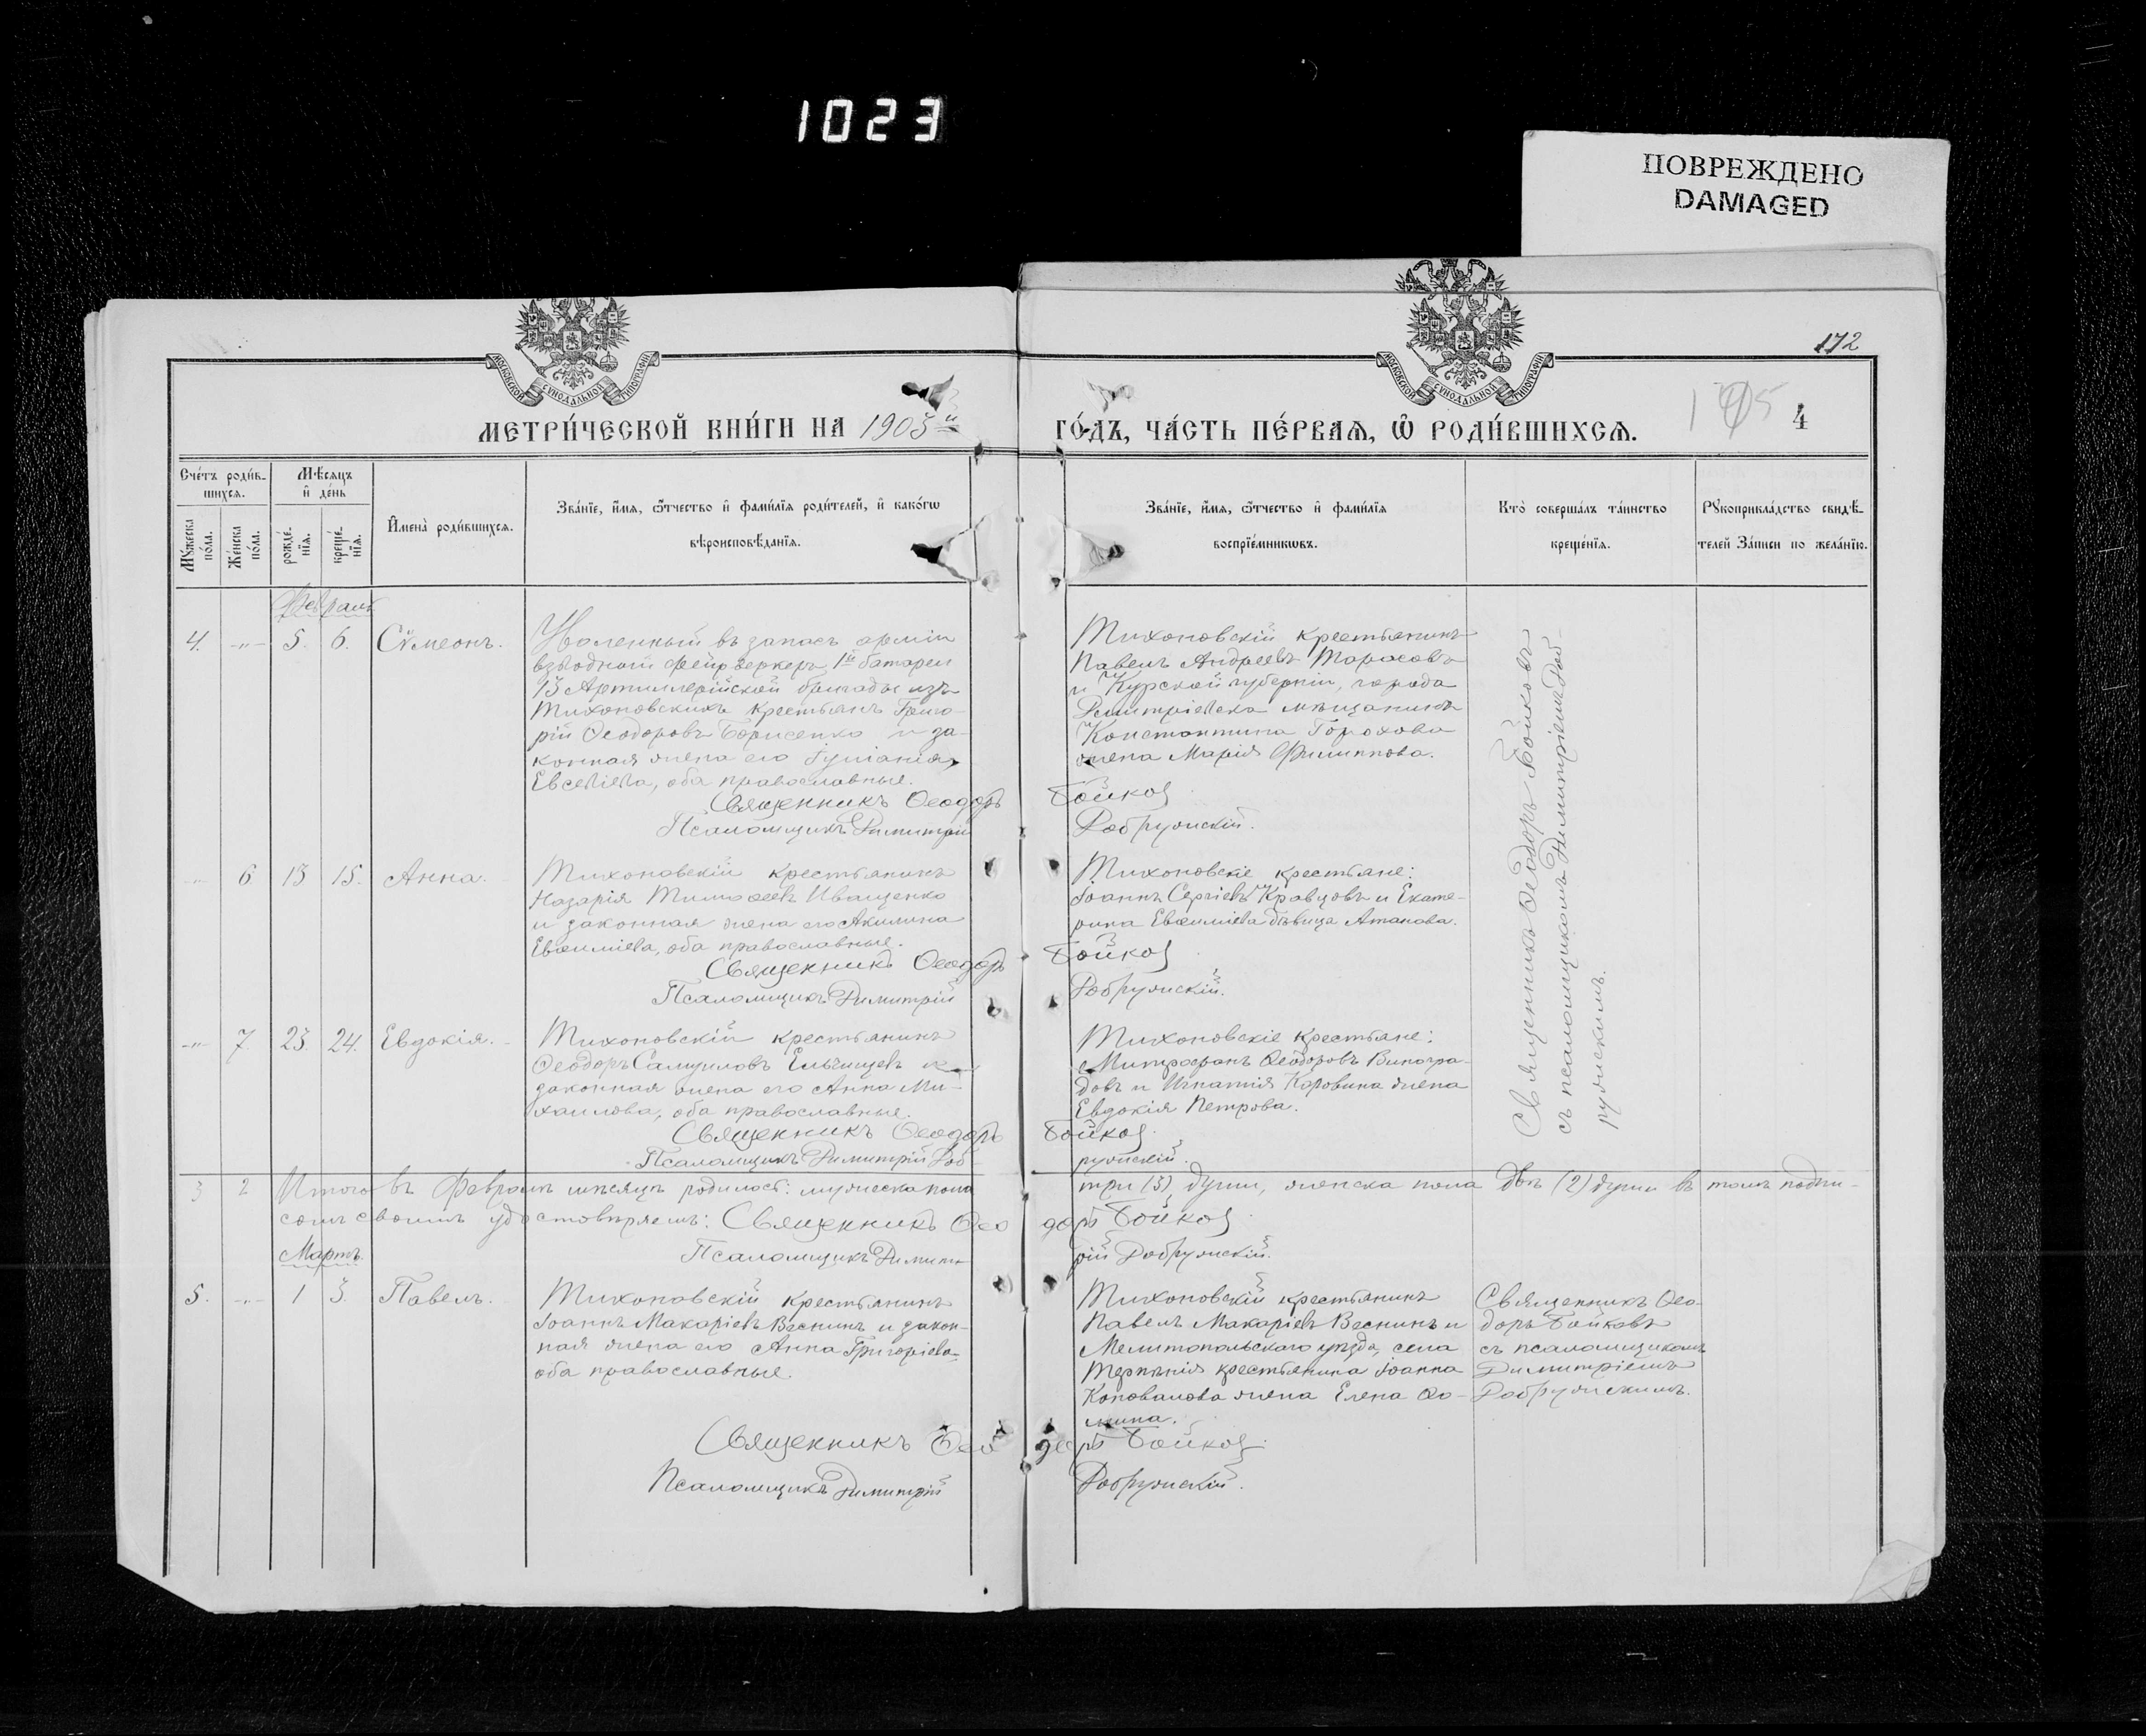 1023
ПОВРЕЖДЕНО
DAMAGED
172
МОСКОВСКОЙ СУНОДАЛЬНОЙ ТИПОГРАФІИ
МОСКОВСКОЙ СУНОДАЛЬНОЙ ТИПОГРАФІИ
МЕТРИ́ЧЕСКОЙ КНИ́ГИ НА 1903й
ГО́ДЪ, ЧА́СТЬ ПЕ́РВАѦ, Ѡ҆ РОДИ́ВШИХСѦ.
4
Сче́тъ роди́в-
шихсѧ.
Мѣ́сѧцъ
и҆ де́нь
Мꙋ́жеска по́ла.
Же́нска по́ла.
рожде́-
нїѧ.
креще́-
нїѧ.
И҆мена̀ роди́вшихсѧ.
Зва́нїе, и҆́мѧ, ѻ҆́тчество и҆ фами́лїѧ роди́телей, и҆ како́гѡ
вѣроисповѣ́данїѧ.
Зва́нїе, и҆́мѧ, ѻ҆́тчество и҆ фами́лїѧ
воспрїе́мникѡвъ.
Кто̀ соверша́лъ та́инство
креще́нїѧ.
Рꙋкоприкла́дство свидѣ́-
телей за́писи по жела́нїю.
Февраль
4. -"- 5. 6. Сѵмеонъ.
Уволенный въ запасъ арміи
взводный фейрверкеръ 1й батареи
13 Артиллерійской бригады изъ
Тихоновскихъ крестьянъ Григо-
рій Ѳеодоровъ Борисенко и за-
конная жена его Іуліанія
Евсевіева, оба православные.
Священникъ Ѳеодоръ Бойковъ
Псаломщикъ Димитрій Добружскій.
Тихоновскій крестьянинъ
Павелъ Андреевъ Тарасовъ
и Курской губерніи, города
Дмитріевска мѣщанина
Константина Горохова
жена Марія Филиппова.
Священникъ Ѳеодоръ Бойковъ
съ псаломщикомъ Димитріемъ Доб-
ружскимъ.
-"- 6 13 15. Анна.
Тихоновскій крестьянинъ
Назарія Тимоѳеевъ Иващенко
и законная жена его Акилина
Евѳиміева, оба православные.
Священникъ Ѳеодоръ Бойковъ
Псаломщикъ Димитрій Добружскій.
Тихоновскіе крестьяне:
Іоаннъ Сергіевъ Кравцовъ и Екате-
рина Евѳиміева дѣвица Атанова.
-"- 7. 23. 24. Евдокія.
Тихоновскій крестьянинъ
Ѳеодоръ Самуиловъ Ельчищевъ и
законная жена его Анна Ми-
хаилова, оба православные.
Священникъ Ѳеодоръ Бойковъ
Псаломщикъ Димитрій Доб-ружскій.
Тихоновскіе крестьяне:
Митрофанъ Ѳеодоровъ Виногра-
довъ и Игнатія Коровина жена
Евдокія Петрова.
3 2 Итого въ Февралѣ мѣсяцѣ родилось: мужеска пола три (3) души, женска пола двѣ (2) души въ томъ подпи-
сомъ своимъ удостовѣряемъ: Священникъ Ѳеодоръ Бойковъ
Псаломщикъ Димитрій Добружскій.
Мартъ
5. -"- 1 3. Павелъ.
Тихоновскій крестьянинъ
Іоаннъ Макаріевъ Веснинъ и закон-
ная жена его Анна Григоріева,
оба православные.
Тихоновскій крестьянинъ
Павелъ Макаріевъ Веснинъ и
Мелитопольскаго уѣзда, села
Терпѣнія крестьянина Іоанна
Коновалова жена Елена Ѳо-
мина.
Священникъ Ѳео-
доръ Бойковъ
съ псаломщикомъ
Димитріемъ
Добружскимъ.
Священникъ Ѳеодоръ Бойковъ
Псаломщикъ Димитрій Добружскій.